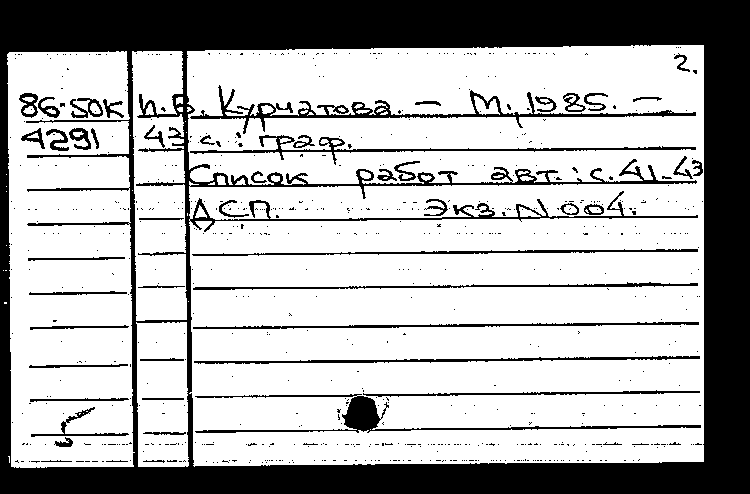 2.
86-50К И.В. Курчатова. — М., 1985. —
4291 43 с. : граф.
Список работ авт. : с. 41-43
ДСП. Экз. N 004.